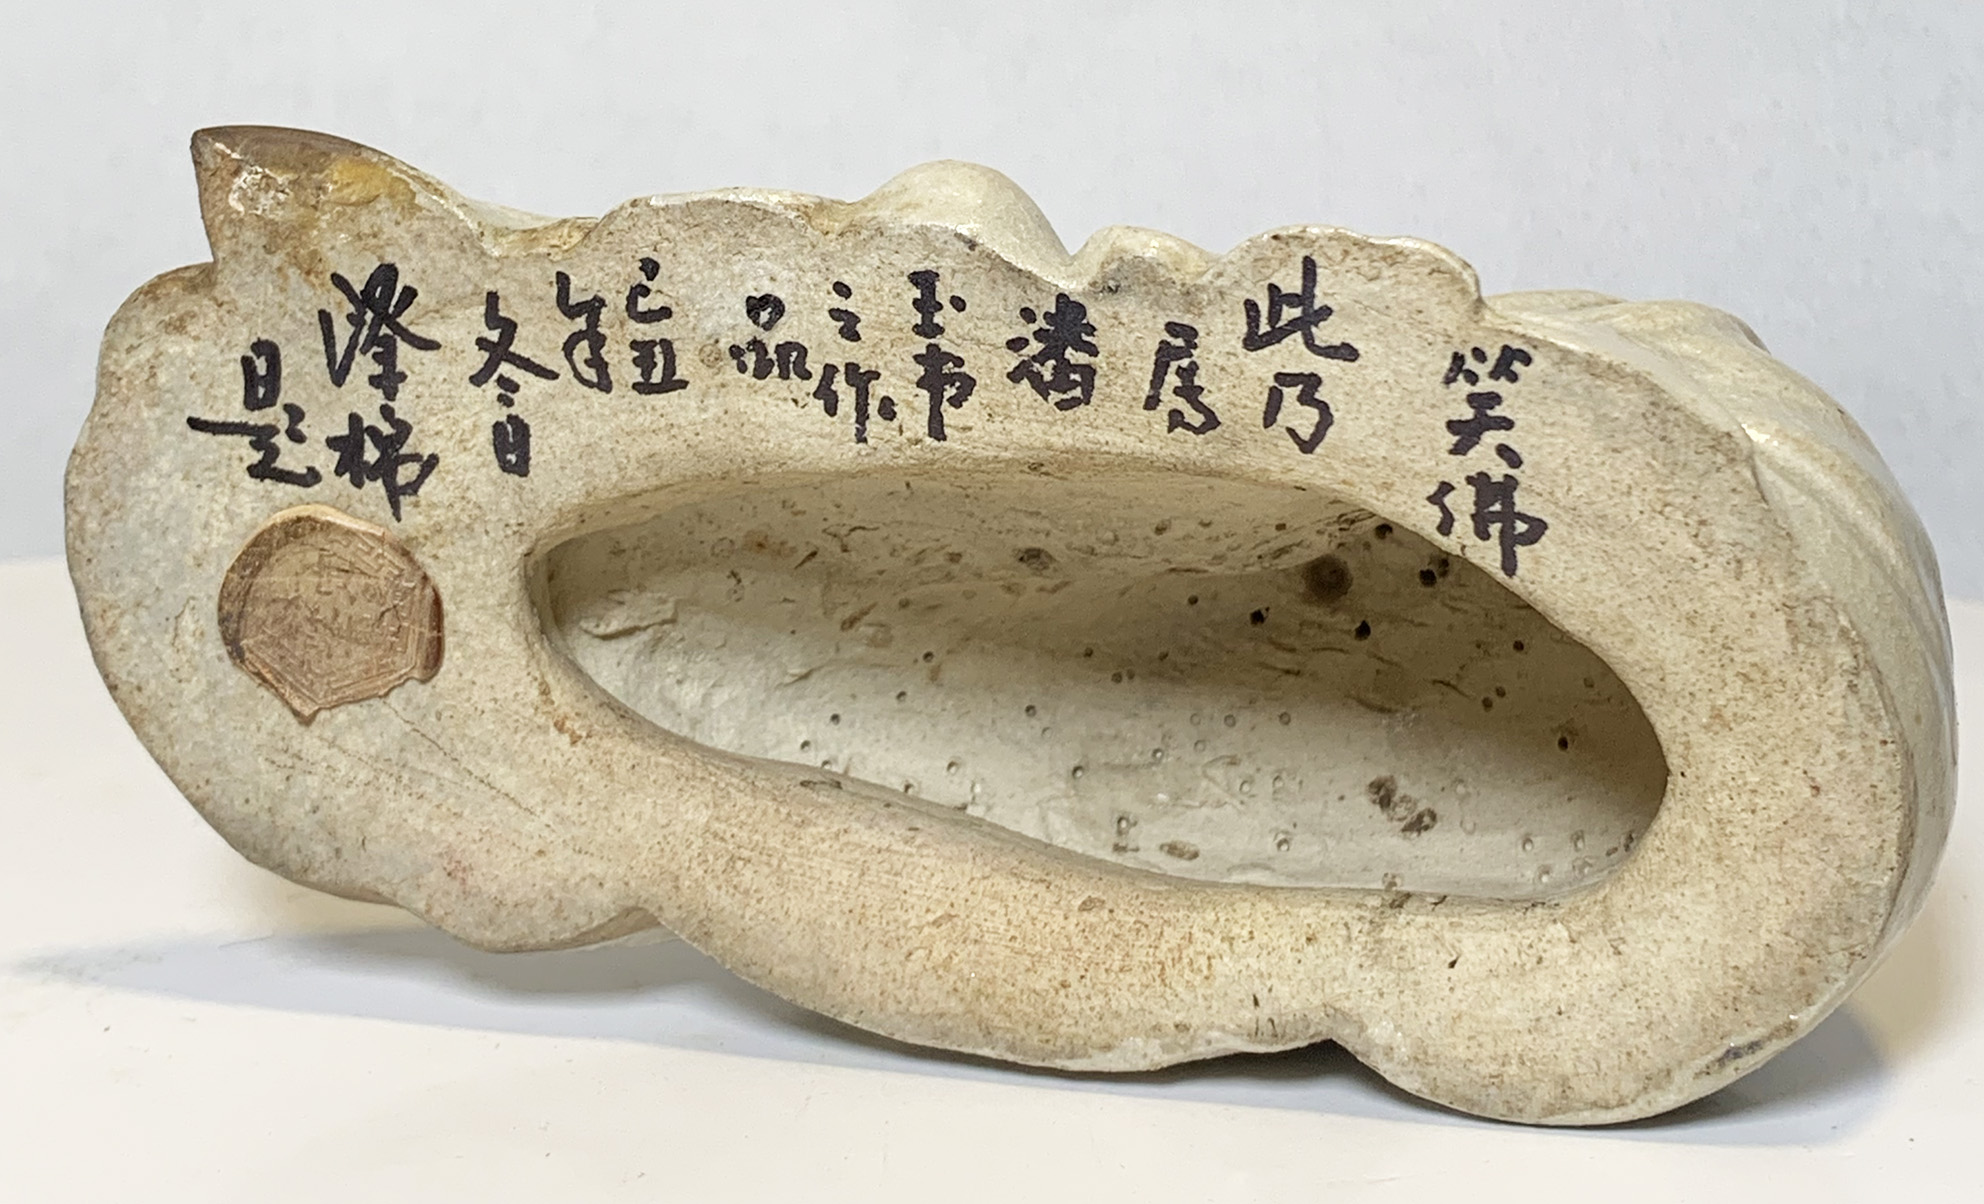 笑佛
此乃
属
潘
玉书
之作
品
己丑
年
冬日
泽棉
题